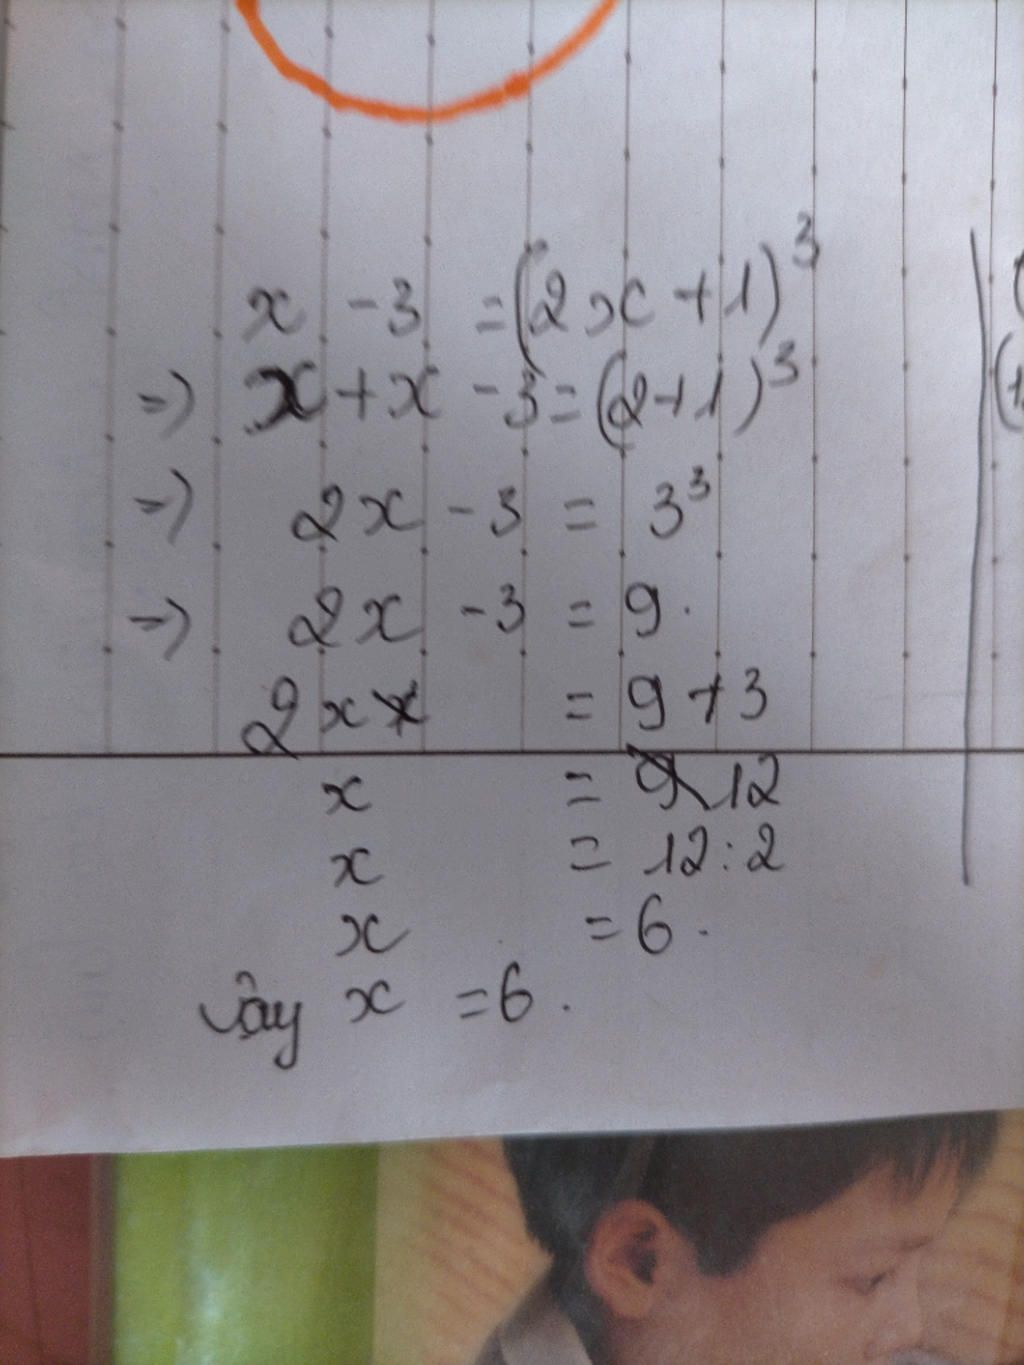 x - 3 = (2x + 1)³
=) x + x - 3 = (2+1)³
=) 2x - 3 = 3³
=) 2x - 3 = 9.
2x = 9 + 3
x = 12
x = 12 : 2
x = 6.
vậy x = 6.